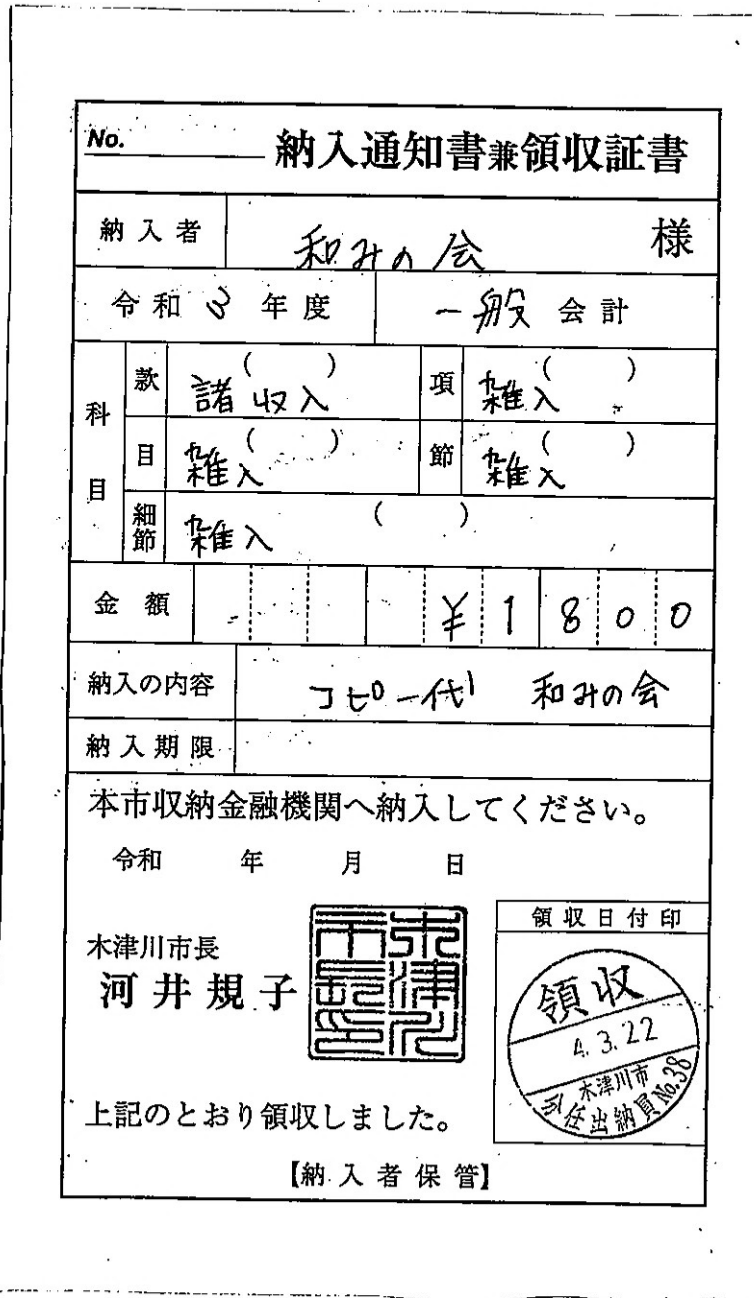 No. 納入通知書兼領収証書
納入者 和みの会 様
令和 3 年度 一般 会計
科目
款 ( ) 諸収入 項 ( ) 雑入
目 ( ) 雑入 節 ( ) 雑入
細節 雑入 ( )
金額 ¥1800
納入の内容 コピー代 和みの会
納入期限
本市収納金融機関へ納入してください。
令和 年 月 日
木津川市長
河井規子
木津川市長印
領収日付印
領収
4.3.22
木津川市
分任出納員No.38
上記のとおり領収しました。
【納入者保管】